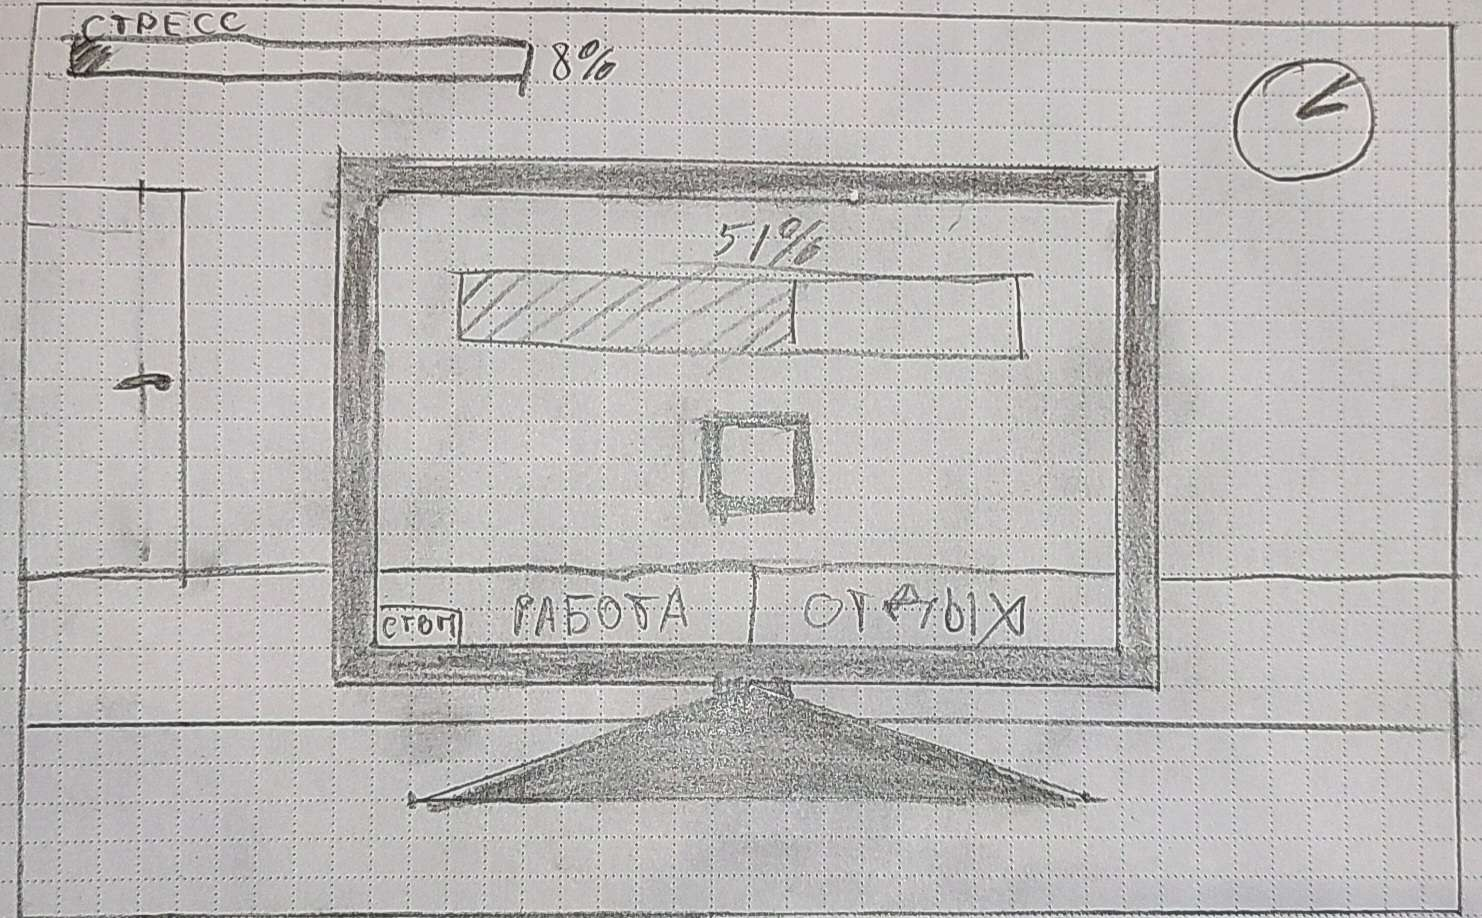 СТРЕСС
8%
51%
СТОП
РАБОТА
ОТДЫХ